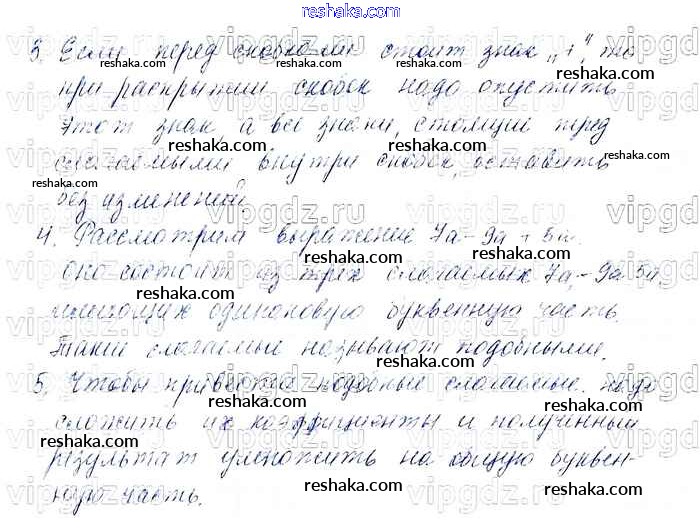 reshaka.com
3. Если перед скобками стоит знак „+“, то
при раскрытии скобок надо опустить
этот знак а все знаки, стоящие перед
слагаемыми внутри скобок, оставить
без изменений.
4. Рассмотрим выражение 7a - 9a + 5a.
оно состоит из трех слагаемых 7a, -9a 5a,
имеющих одинаковую буквенную часть.
Такие слагаемые называют подобными.
5. Чтобы привести подобные слагаемые, надо
сложить их коэффициенты и полученный
результат умножить на общую буквен-
ную часть.